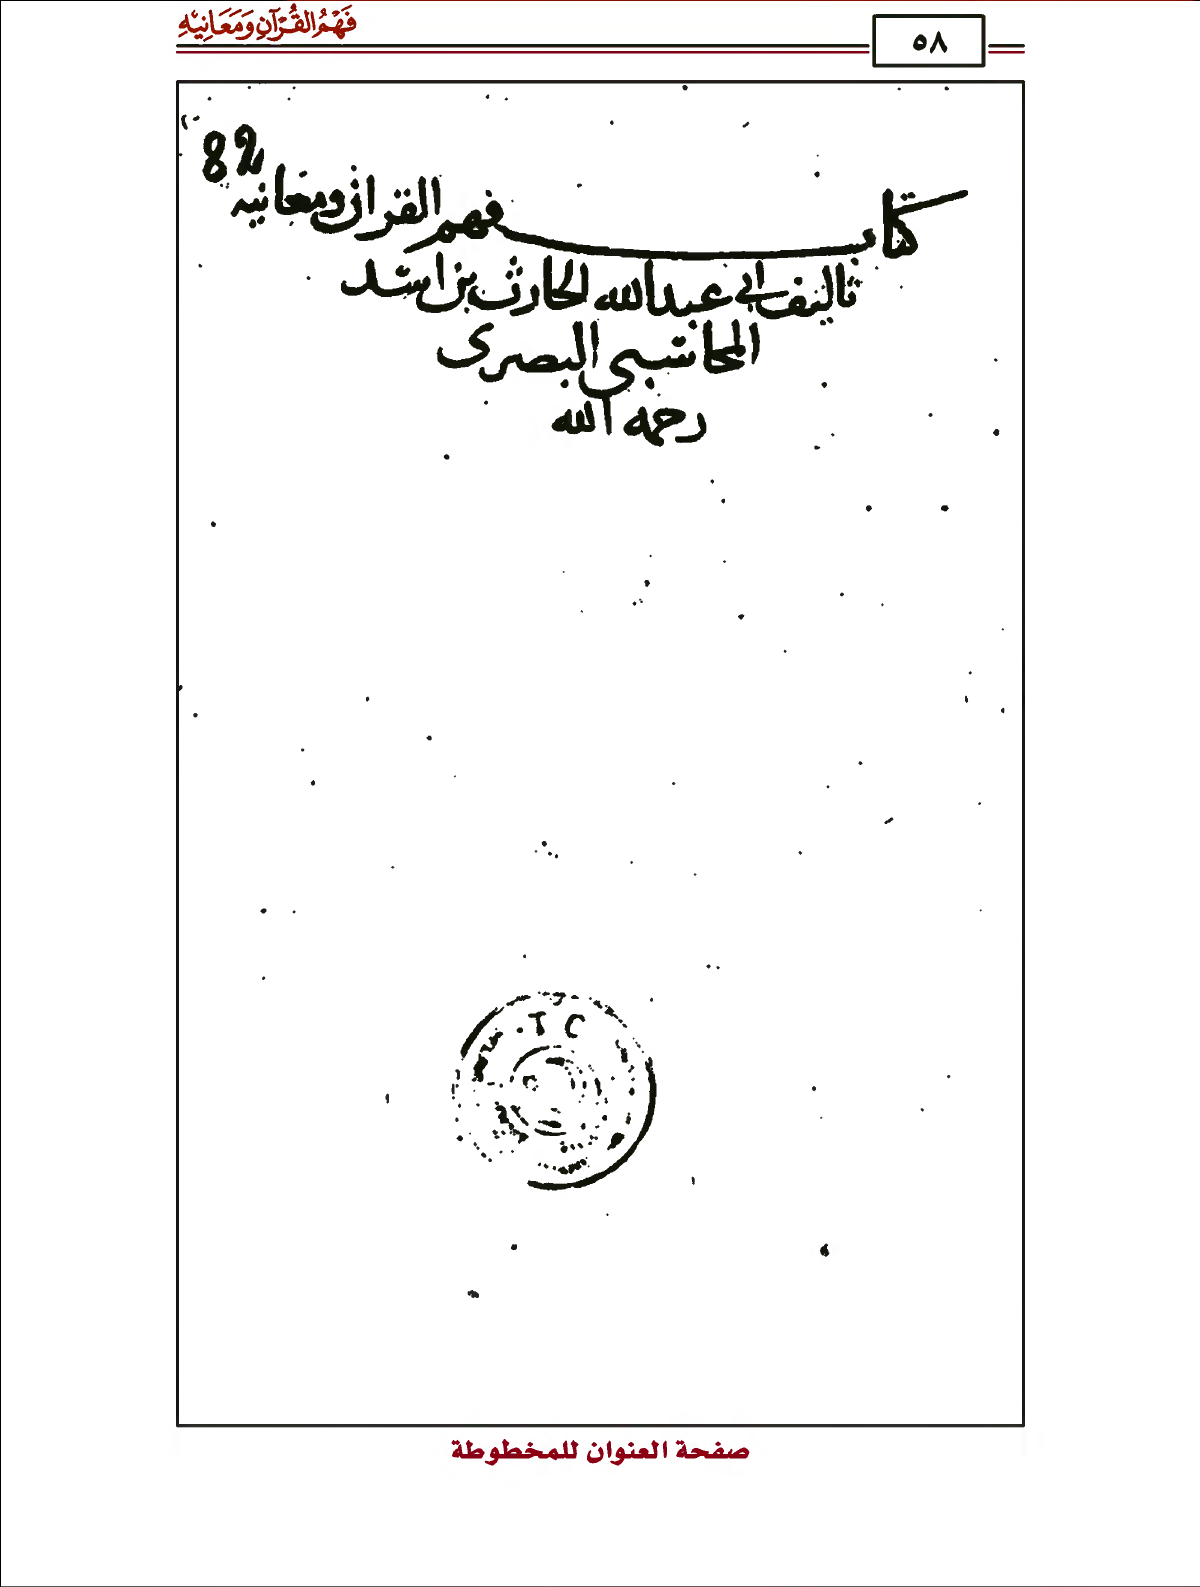 فَهْمُ القُرْآنِ وَمَعَانِيْهِ
٥٨
82
كتاب فهم القران ومعانيه
تاليف ابي عبدالله الحارث بن اسد
المحاسبي البصرى
رحمه الله
T C
صفحة العنوان للمخطوطة